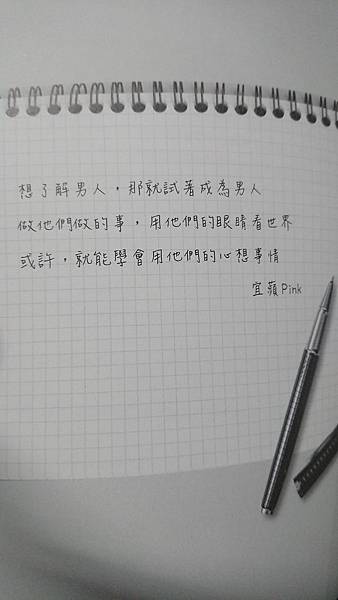 想了解男人，那就試著成為男人
做他們做的事，用他們的眼睛看世界
或許，就能學會用他們的心想事情
宜蘋Pink